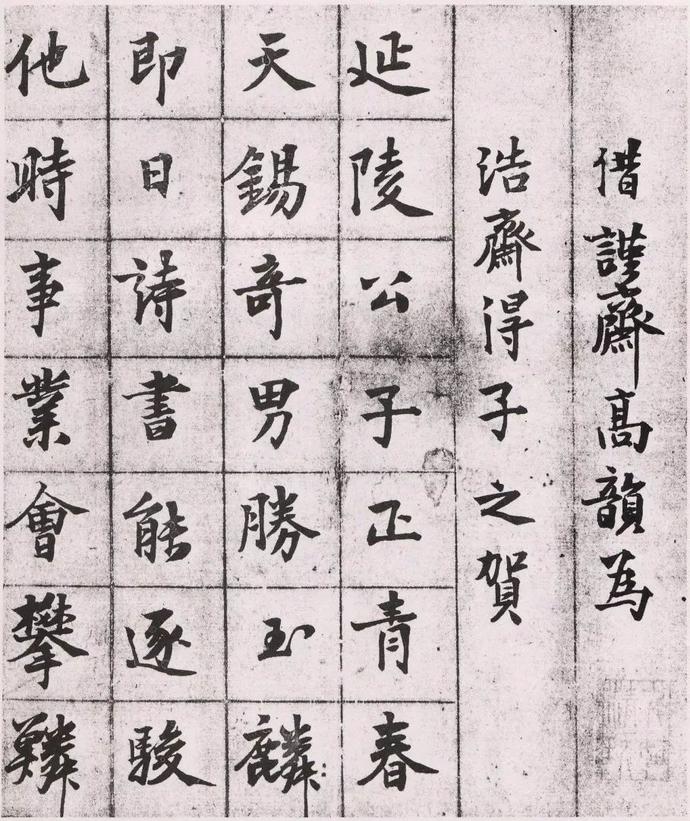 借謹齋髙韻為
浩齋得子之賀
延陵公子正青春
天錫奇男勝玉麟
即日詩書能逐駿
他時事業會攀鱗